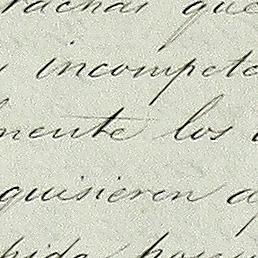 rachas que
incompete
mente los
quisieren a
hida